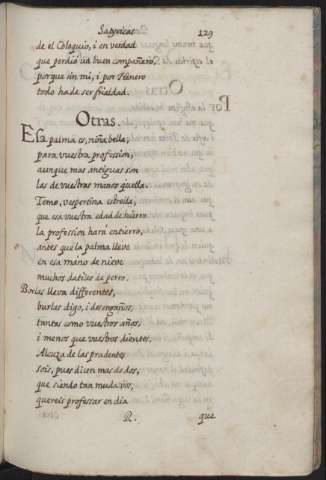 Satyricas. 129
de el Coloquio, i en verdad
que perdio un buen compañero,
porque sin mi, i por Henero
todo ha de ser frialdad.
Otras.
Esa palma es, niña bella,
para vuestra profession,
aunque mas antiguas son
las de vuestras manos que ella.
Temo, vespertina estrella,
que esa vuestra edad de hierro
la profession hará entierro,
antes que la palma lleve
en esa mano de nieve
muchos datiles de perro.
Borlas lleva differentes,
burlas digo, i desengaños,
tantas como vuestros años,
i menos que vuestros dientes.
Alcuza de las prudentes
sois, pues dicen mas de dos,
que siendo tan muda vos,
quereis professar en dia
R. que